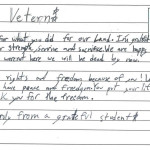 Veterns
for what you did for our land. It's protects
r strength, service and sacrifice. We are happy
werent here we will be dead by now.
rights and freedom because of you!
have peace and freedom put your li
k you for the freedom.
from a grateful student